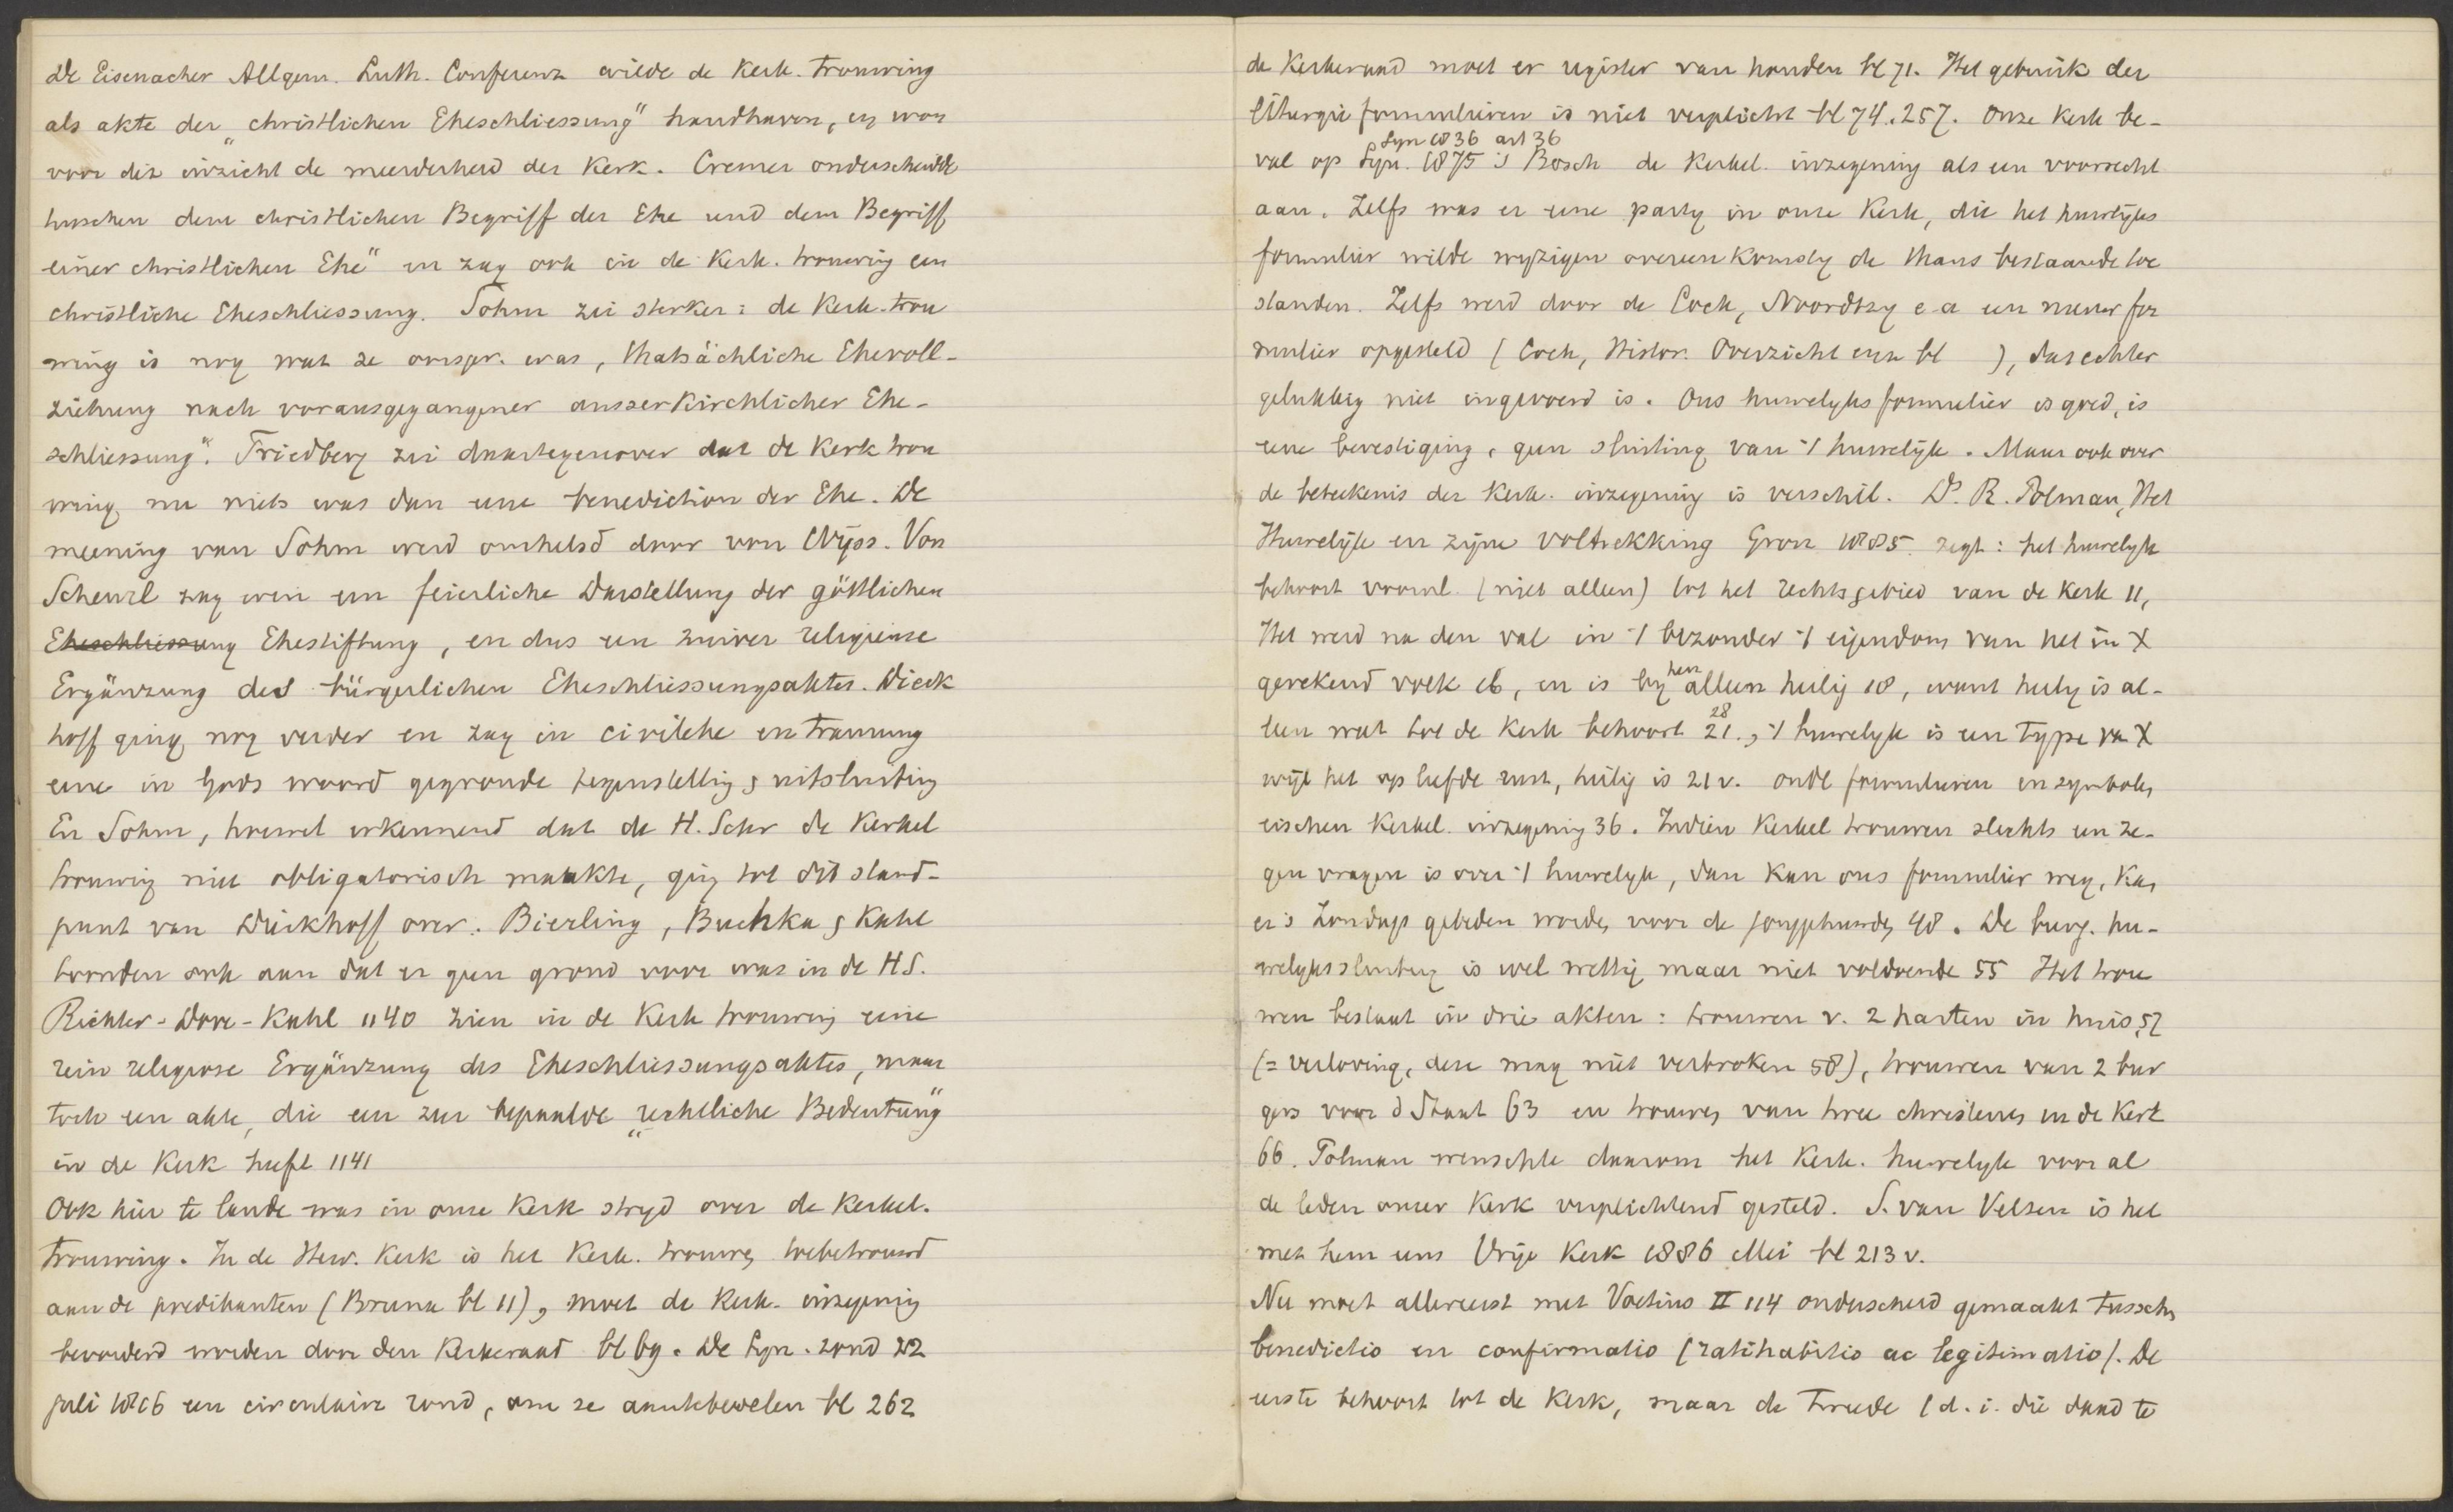 De Eisenacher Allgem. Luth. Conferenz wilde de Kerk. trouwing
als akte der „christlichen Eheschliessung" handhaven, en won
voor dit inzicht de meerderheid der Kerk. Cremer onderscheidde
tusschen dem christlichen Begriff der Ehe und dem Begriff
einer christlichen Ehe" en zag ook in de Kerk. trouwing een
christliche Eheschliessung. Sohm zei sterker: de Kerk. trou
wing is nog wat ze oorspr. was, thatsächliche Ehevoll-
ziehung nach vorausgegangener ausserkirchlicher Ehe-
schliessung". Friedberg zei daartegenover dat de Kerk trou
wing nu niets was dan eene benediction der Ehe. De
meening van Sohm werd omhelsd door von Wyss. Von
Scheurl zag erin een feierliche Darstellung der göttlichen
Eheschliessung Ehestiftung, en dus een zuiver religieuse
Ergänzung des bürgerlichen Eheschliessungsaktes. Dieck
hoff ging nog verder en zag in civilehe en Trauung
eene in Gods woord gegronde tegenstelling & uitsluiting
En Sohm, hoewel erkennend dat de H. Schr de Kerkel
trouwing niet obligatorisch maakte, ging tot dit stand-
punt van Dieckhoff over. Bierling, Buchka & Kahl
toonden ook aan dat er geen grond voor was in de H.S.
Richter-Dove-Kahl 1140 zien in de Kerk trouwing eine
rein religiose Ergänzung des Eheschliessungsaktes, maar
toch een akte, die een zeer bepaalde „rechtliche Bedeutung"
in de Kerk heeft 1141
Ook hier te lande was in onze Kerk stryd over de Kerkel.
trouwing. In de Herv. Kerk is het Kerk. trouwen toebetrouwd
aan de predikanten (Bruna bl 11), moet de Kerk. inzegening
bevorderd worden door den Kerkeraad bl 69. De Syn. zond 22
juli 1866 een circulaire rond, om ze aantebevelen bl 262
de Kerkeraad moet er register van houden bl 71. Het gebruik der
liturgie formulieren is niet verplicht bl 74. 257. Onze Kerk be-
Syn 1836 art 36
val op Syn. 1875 's Bosch de Kerkel. inzegening als een voorrecht
aan. Zelfs was er eene party in onze Kerk, die het huwelyks
formulier wilde wyzigen overeenkomstig de thans bestaande toe
standen. Zelfs werd door de Cock, Noordtzy e.a een nieuw for
mulier opgesteld (Cock, Histor. Overzicht enz bl ), dat echter
gelukkig niet ingevoerd is. Ons huwelyks formulier is goed, is
eene bevestiging, geen sluiting van 't huwelijk. Maar ook over
de beteekenis der Kerk. inzegening is verschil. Ds. R. Polman, Het
Huwelijk en zijne voltrekking Gron 1885. zegt: het huwelyk
behoort voornl. (niet alleen) tot het rechtsgebied van de Kerk 11,
Het werd na den val in 't bezonder 't eigendom van het in X
hen
gerekend volk 16, en is by alleen heilig 18, want heilig is al-
28
leen wat tot de Kerk behoort 21., 't huwelyk is een type van X
wijl het op liefde rust, heilig is 21v. oude formulieren en symbolen
eischen Kerkel. inzegening 36. Indien Kerkel trouwen slechts een ze-
gen vragen is over 't huwelyk, dan kan ons formulier weg, Kan
er 's Zondags gebeden worden voor de jonggehuwden 48. De burg. hu-
welykssluiting is wel wettig maar niet voldoende 55 Het trou
wen bestaat in drie akten: trouwen v. 2 harten in huis 57
(= verloving, deze mag niet verbroken 58), trouwen van 2 bur
gers voor d Staat 63 en trouwen van twee christenen in de Kerk
66. Polman wenschte daarom het Kerk. huwelyk voor al
de leden onzer Kerk verplichtend gesteld. S. van Velzen is het
met hem eens Vrije Kerk 1886 Mei bl 213 v.
Nu moet allereerst met Voetius II 114 onderscheid gemaakt tusschen
benedictio en confirmatio (ratihabitio ac legitimatio). De
eerste behoort tot de Kerk, maar de tweede (d. i. die daad te